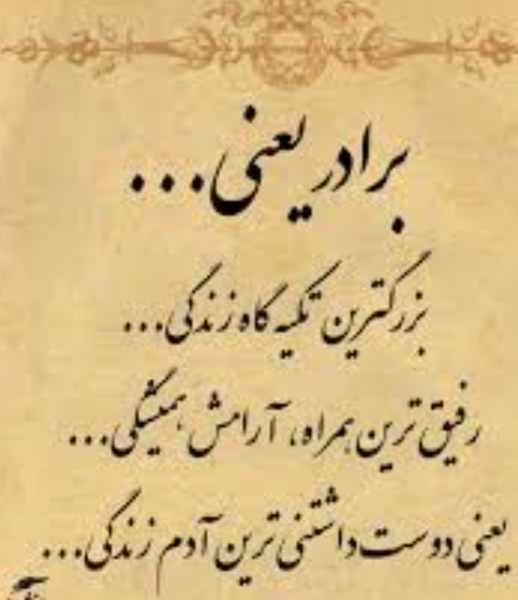 برادر یعنی...
بزرگترین تکیه گاه زندگی...
رفیق ترین همراه، آرامش همیشگی...
یعنی دوست داشتنی ترین آدم زندگی...